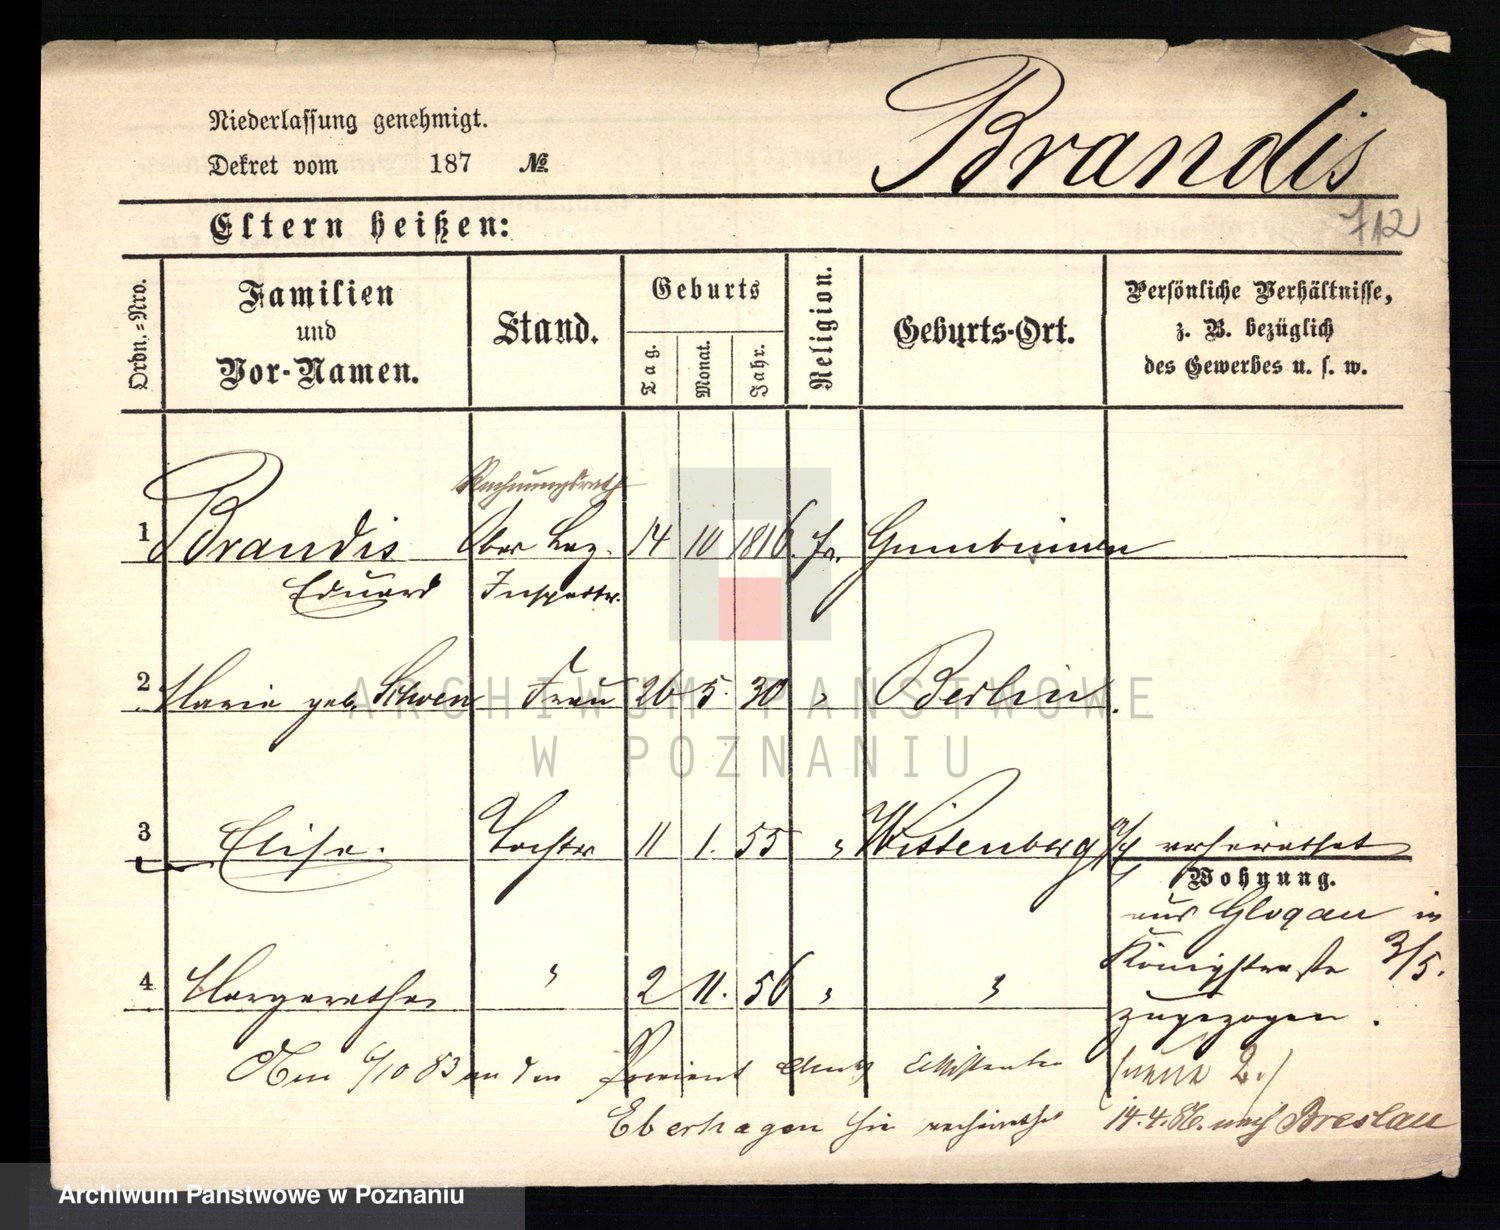 Niederlassung genehmigt.
Brandis
Dekret vom 187 No
Eltern heißen:
712
Ordn.-Nro.
Familien und Vor-Namen.
Stand.
Geburts
Tag.
Monat.
Jahr.
Religion.
Geburts-Ort.
Persönliche Verhältnisse,
z. B. bezüglich
des Gewerbes u. s. w.
Rechnungsrath
1 Brandis Ober Laz. 14 10 1816. Gumbinnen
Eduard Inspektr.
2 Marie geb. Schoen Frau 26 5. 30 " Berlin.
3 Elise. Tochter 11 1. 55 " Wittenberg verheirathet
Wohnung.
aus Glogau in
4 Margarethe " 2 11. 56 " "
Königstraße 3/5.
zugezogen.
Am 6/10 83 an den Proviant Amts Assistenten
Eberhagen hier verheirathet 14.4.86. nach Breslau
ARCHIWUM PAŃSTWOWE
W POZNANIU
Archiwum Państwowe w Poznaniu